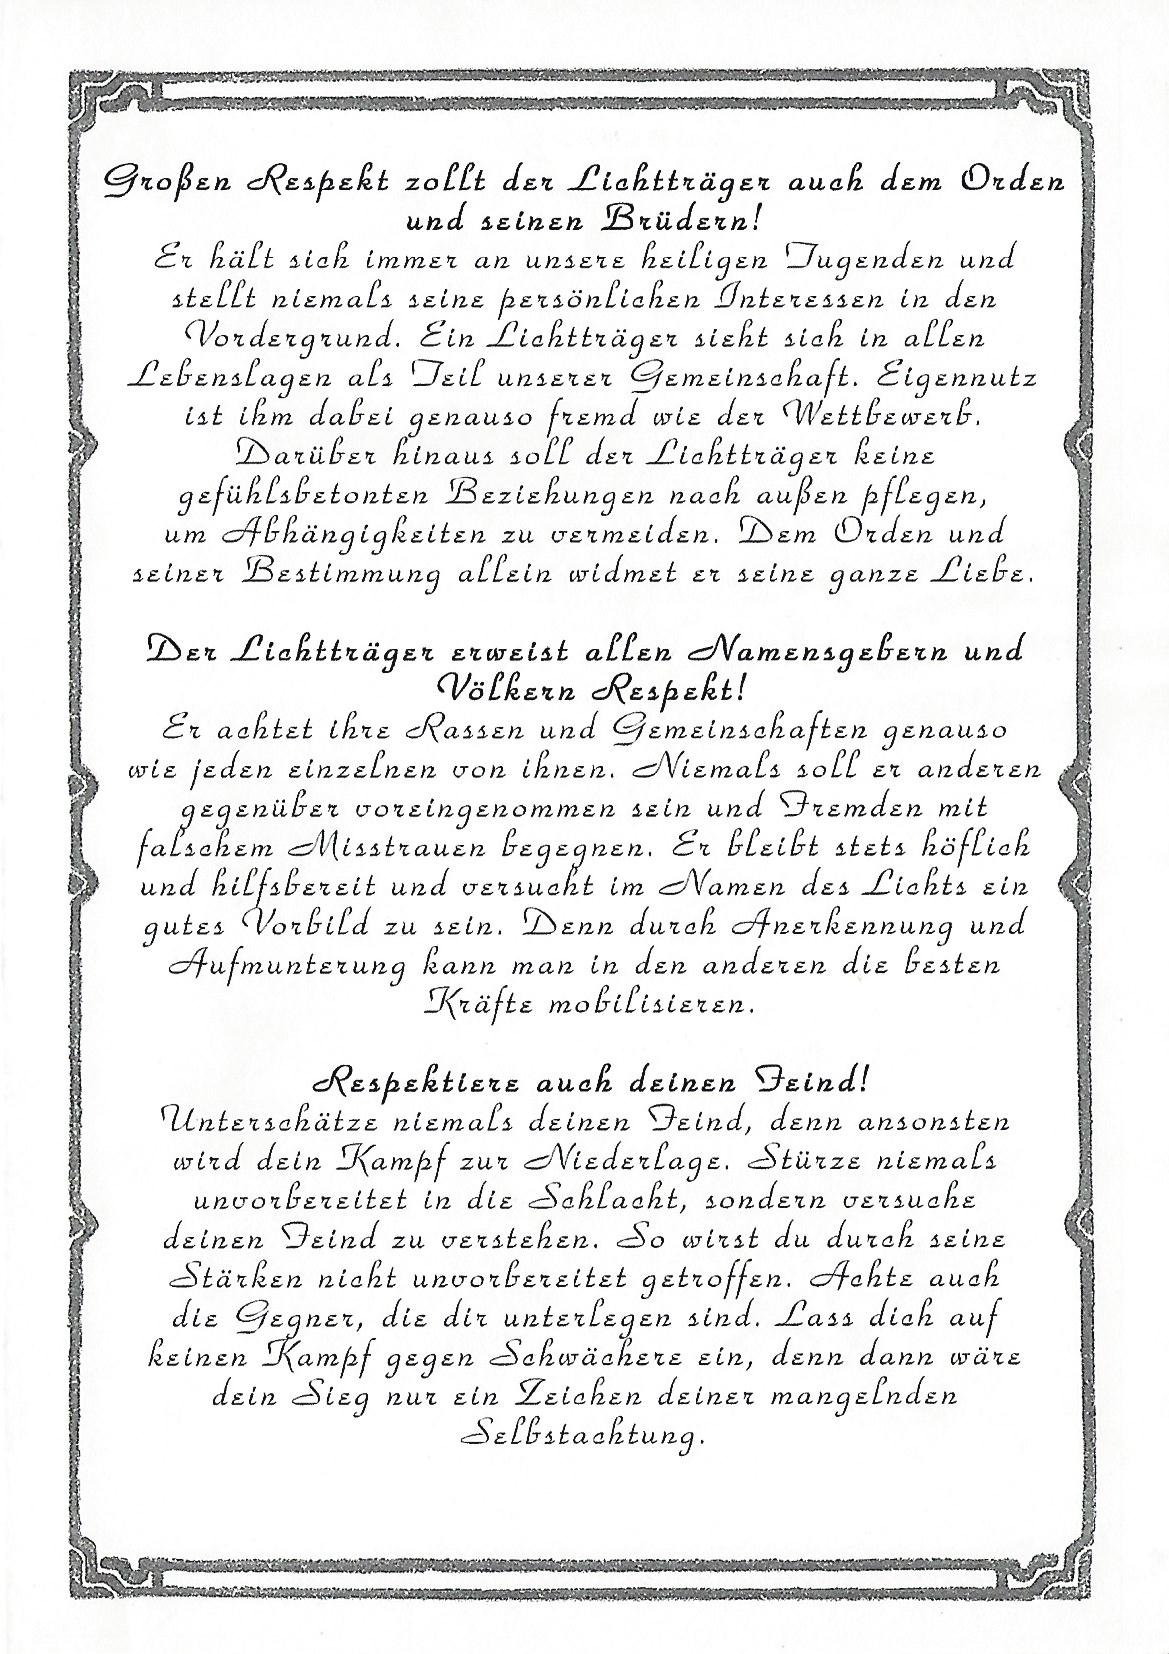 Großen Respekt zollt der Lichtträger auch dem Orden
und seinen Brüdern!
Er hält sich immer an unsere heiligen Tugenden und
stellt niemals seine persönlichen Interessen in den
Vordergrund. Ein Lichtträger sieht sich in allen
Lebenslagen als Teil unserer Gemeinschaft. Eigennutz
ist ihm dabei genauso fremd wie der Wettbewerb.
Darüber hinaus soll der Lichtträger keine
gefühlsbetonten Beziehungen nach außen pflegen,
um Abhängigkeiten zu vermeiden. Dem Orden und
seiner Bestimmung allein widmet er seine ganze Liebe.
Der Lichtträger erweist allen Namensgebern und
Völkern Respekt!
Er achtet ihre Rassen und Gemeinschaften genauso
wie jeden einzelnen von ihnen. Niemals soll er anderen
gegenüber voreingenommen sein und Fremden mit
falschem Misstrauen begegnen. Er bleibt stets höflich
und hilfsbereit und versucht im Namen des Lichts ein
gutes Vorbild zu sein. Denn durch Anerkennung und
Aufmunterung kann man in den anderen die besten
Kräfte mobilisieren.
Respektiere auch deinen Feind!
Unterschätze niemals deinen Feind, denn ansonsten
wird dein Kampf zur Niederlage. Stürze niemals
unvorbereitet in die Schlacht, sondern versuche
deinen Feind zu verstehen. So wirst du durch seine
Stärken nicht unvorbereitet getroffen. Achte auch
die Gegner, die dir unterlegen sind. Lass dich auf
keinen Kampf gegen Schwächere ein, denn dann wäre
dein Sieg nur ein Zeichen deiner mangelnden
Selbstachtung.